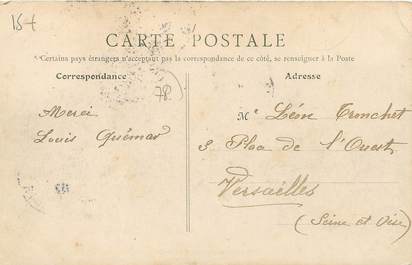 15+
CARTE POSTALE
Certains pays étrangers n'acceptant pas la correspondance de ce côté, se renseigner à la Poste
Correspondance
Adresse
78
Merci
Louis Quémar
Mr Léon Tronchet
3 Place de l'Ouest
Versailles
(Seine et Oise)